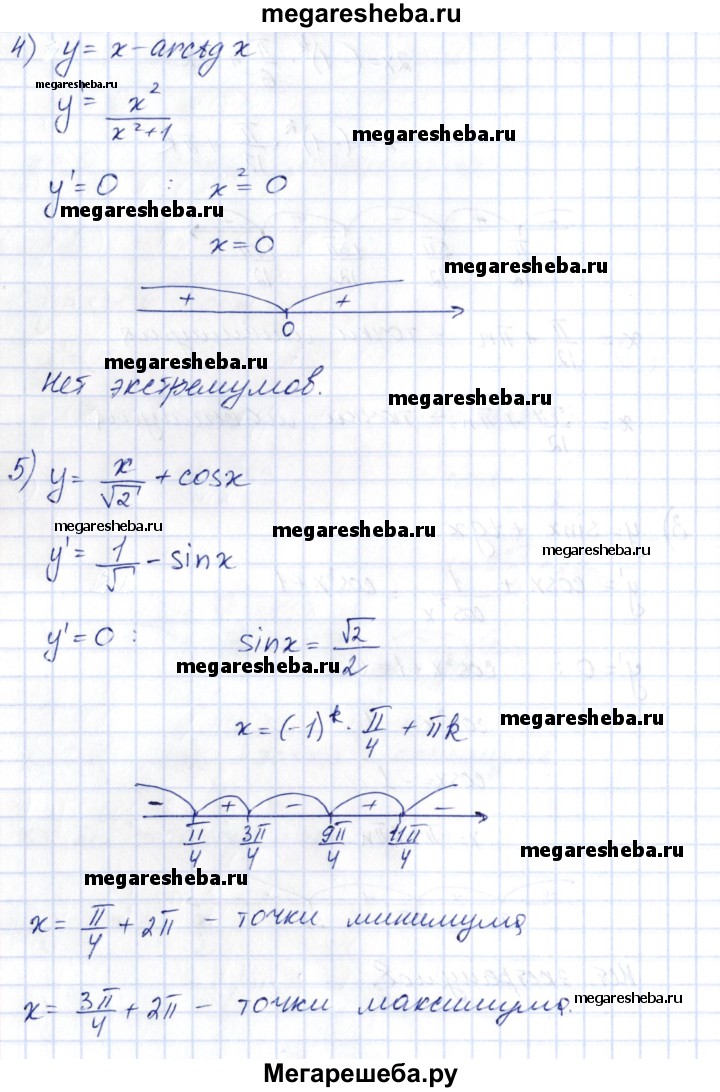 megaresheba.ru
4) y = x - arctg x
megaresheba.ru
y' = x² / (x² + 1)
megaresheba.ru
y' = 0 : x² = 0
megaresheba.ru
x = 0
megaresheba.ru
+ +
0
megaresheba.ru
Нет экстремумов.
megaresheba.ru
5) y = x / √2 + cos x
megaresheba.ru megaresheba.ru megaresheba.ru
y' = 1 / √ - sin x
y' = 0 : sin x = √2 / 2
megaresheba.ru
x = (-1)^k · π/4 + πk
megaresheba.ru
- + - + -
π/4 3π/4 9π/4 11π/4
megaresheba.ru
megaresheba.ru
x = π/4 + 2π - точки минимума
x = 3π/4 + 2π - точки максимума.
megaresheba.ru
Мегарешеба.ру